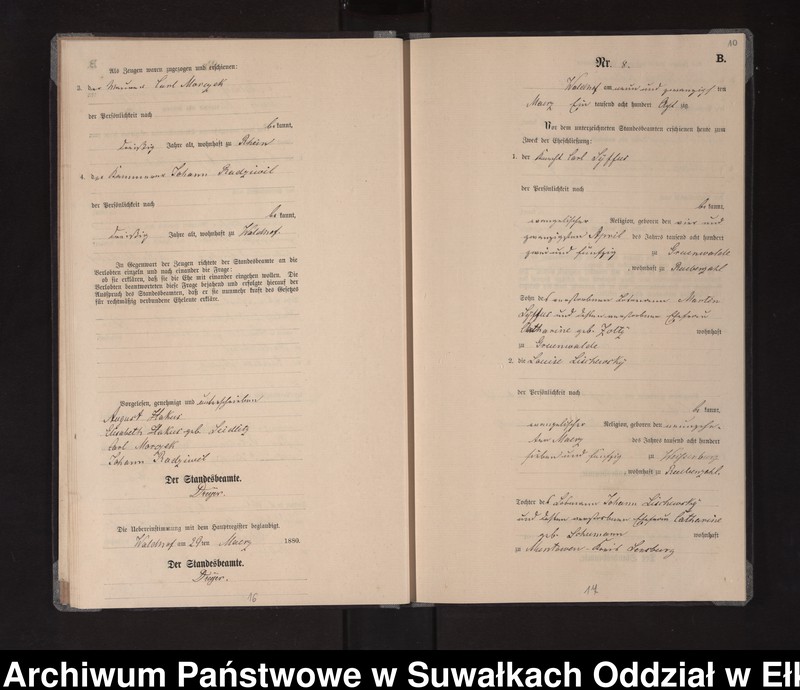 Als Zeugen waren zugezogen und erschienen:
3. der Maurer Carl Marczyk
der Persönlichkeit nach
bekannt,
dreißig Jahre alt, wohnhaft zu Rhein
4. der Johann Radziwil
der Persönlichkeit nach
bekannt,
dreißig Jahre alt, wohnhaft zu Waldhof
In Gegenwart der Zeugen richtete der Standesbeamte an die
Verlobten einzeln und nach einander die Frage:
ob sie erklären, daß sie die Ehe mit einander eingehen wollen. Die
Verlobten beantworteten diese Frage bejahend und erfolgte hierauf der
Ausspruch des Standesbeamten, daß er sie nunmehr kraft des Gesetzes
für rechtmäßig verbundene Eheleute erkläre.
Vorgelesen, genehmigt und unterschrieben
August Hakus
Elisabeth Hakus geb. Seidlitz
Carl Marczyk
Johann Radziwil
Der Standesbeamte.
Dreyer.
Die Uebereinstimmung mit dem Hauptregister beglaubigt.
Waldhof am 29ten Maerz 1880.
Der Standesbeamte.
Dreyer.
16
10
Nr. 8. B.
Waldhof am neun und zwanzigsten
Maerz Ein tausend acht hundert
Vor dem unterzeichneten Standesbeamten erschienen heute zum
Zweck der Eheschließung:
1. der Knecht Carl Lyffus
der Persönlichkeit nach
bekannt,
evangelischer Religion, geboren den vier und
zwanzigsten April des Jahres tausend acht hundert
zwei und fünfzig zu Gruenwalde
, wohnhaft zu Ruebezahl
Sohn des verstorbenen Losmann Martin
Lyffus und dessen verstorbene Ehefrau
Catharine geb. Zoltz wohnhaft
zu Gruenwalde
2. die Louise Lischewsky
der Persönlichkeit nach
bekannt,
evangelischer Religion, geboren den neunzehn-
ten Maerz des Jahres tausend acht hundert
sieben und fünfzig zu Weissenburg
, wohnhaft zu Ruebezahl.
Tochter des Losmann Johann Lischewsky
und dessen verstorbene Ehefrau Catharine
geb. Schumann wohnhaft
zu Kreis Sensburg
17
Archiwum Państwowe w Suwałkach Oddział w Eł